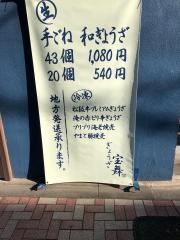 生
手ごね 和ぎょうざ
43個 1,080円
20個 540円
冷凍
松阪牛プレミアムぎょうざ
俺の赤ピリ辛ぎょうざ
プリプリ海老焼売
やまと豚焼売
地方発送承ります。
ぎょうざ
宝舞